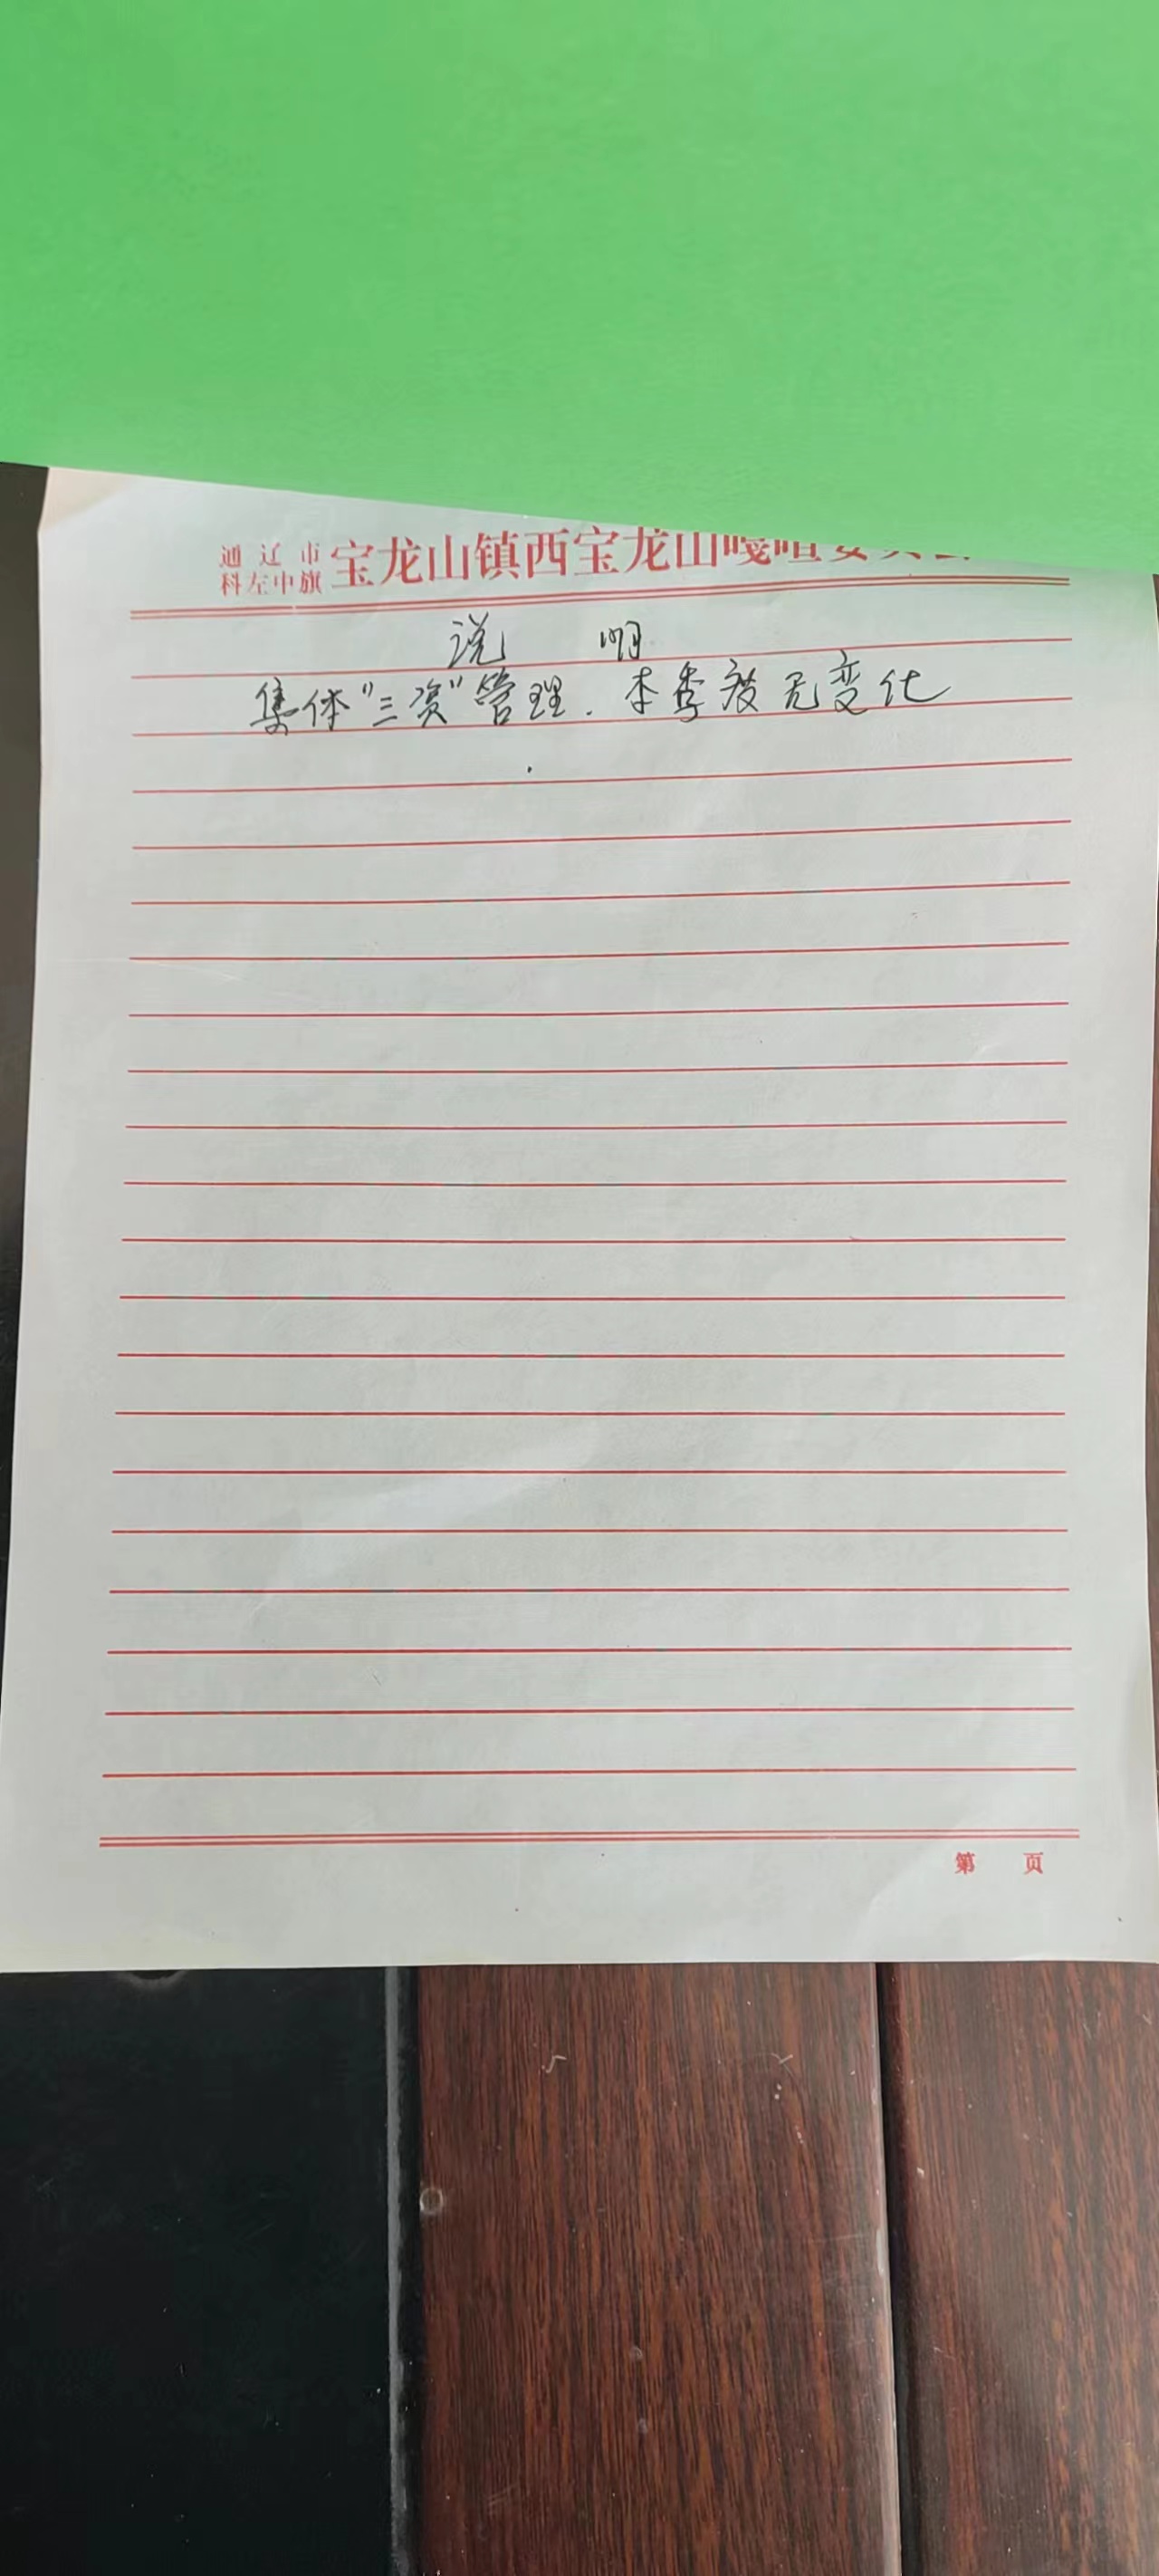 通辽市
科左中旗 宝龙山镇西宝龙山嘎喳委员会
说 明
集体"三资"管理.本季度无变化
第 页